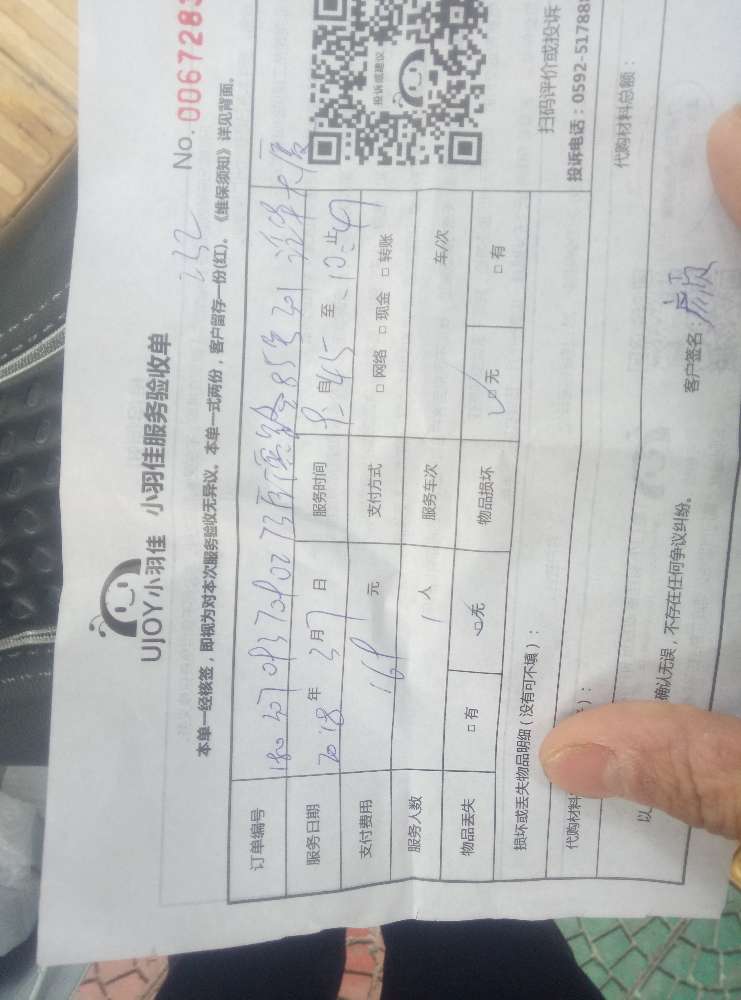 UJOY小羽佳 小羽佳服务验收单
No.0067283
232
本单一经核签，即视为对本次服务验收无异议。本单一式两份，客户留存一份(红)。《维保须知》详见背面。
订单编号
服务日期 2018 年 3 月 7 日 服务时间 自 9:45 至 10:49 止
支付费用 169 元 支付方式 □ 网络 □ 现金 □ 转账
服务人数 1 人 服务车次 车/次
物品丢失 □ 有 □ 无 物品损坏 □ 无 □ 有
损坏或丢失物品明细（没有可不填）：
代购材料 ）： 代购材料总额：
以 确认无误，不存在任何争议纠纷。
客户签名：
投诉或建议
扫码评价或投诉
投诉电话：0592-51788